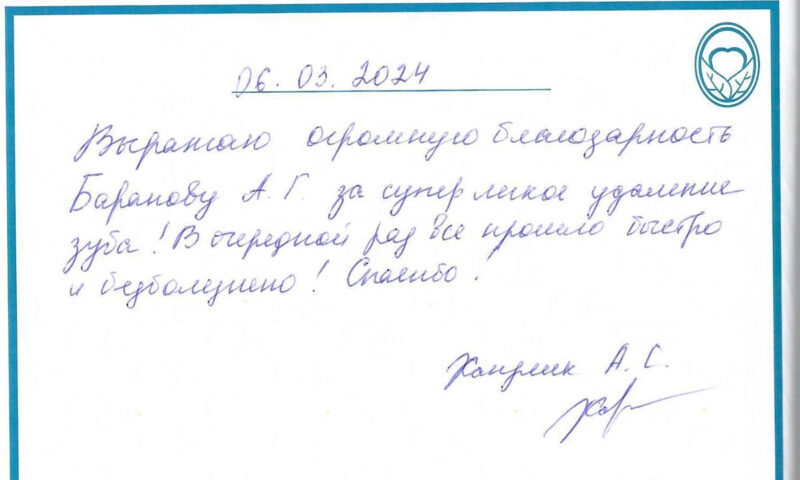 06.03.2024
Выражаю огромную благодарность
Баранову А.Г. за супер легкое удаление
зуба! В очередной раз все прошло быстро
и безболезнено! Спасибо!
А. С.